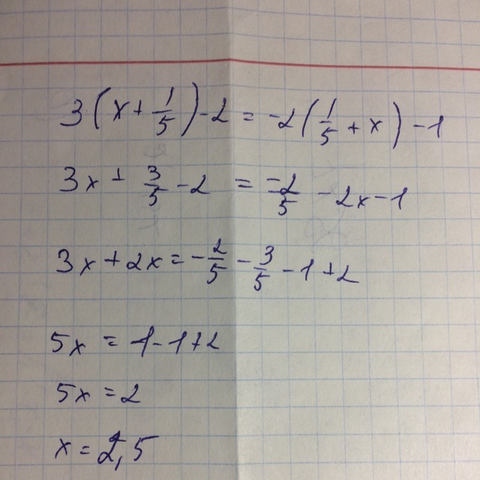 3(x+1/5)-2=-2(1/5+x)-1
3x+3/5-2=-2/5-2x-1
3x+2x=-2/5-3/5-1+2
5x=-1-1+2
5x=2
x=2,5